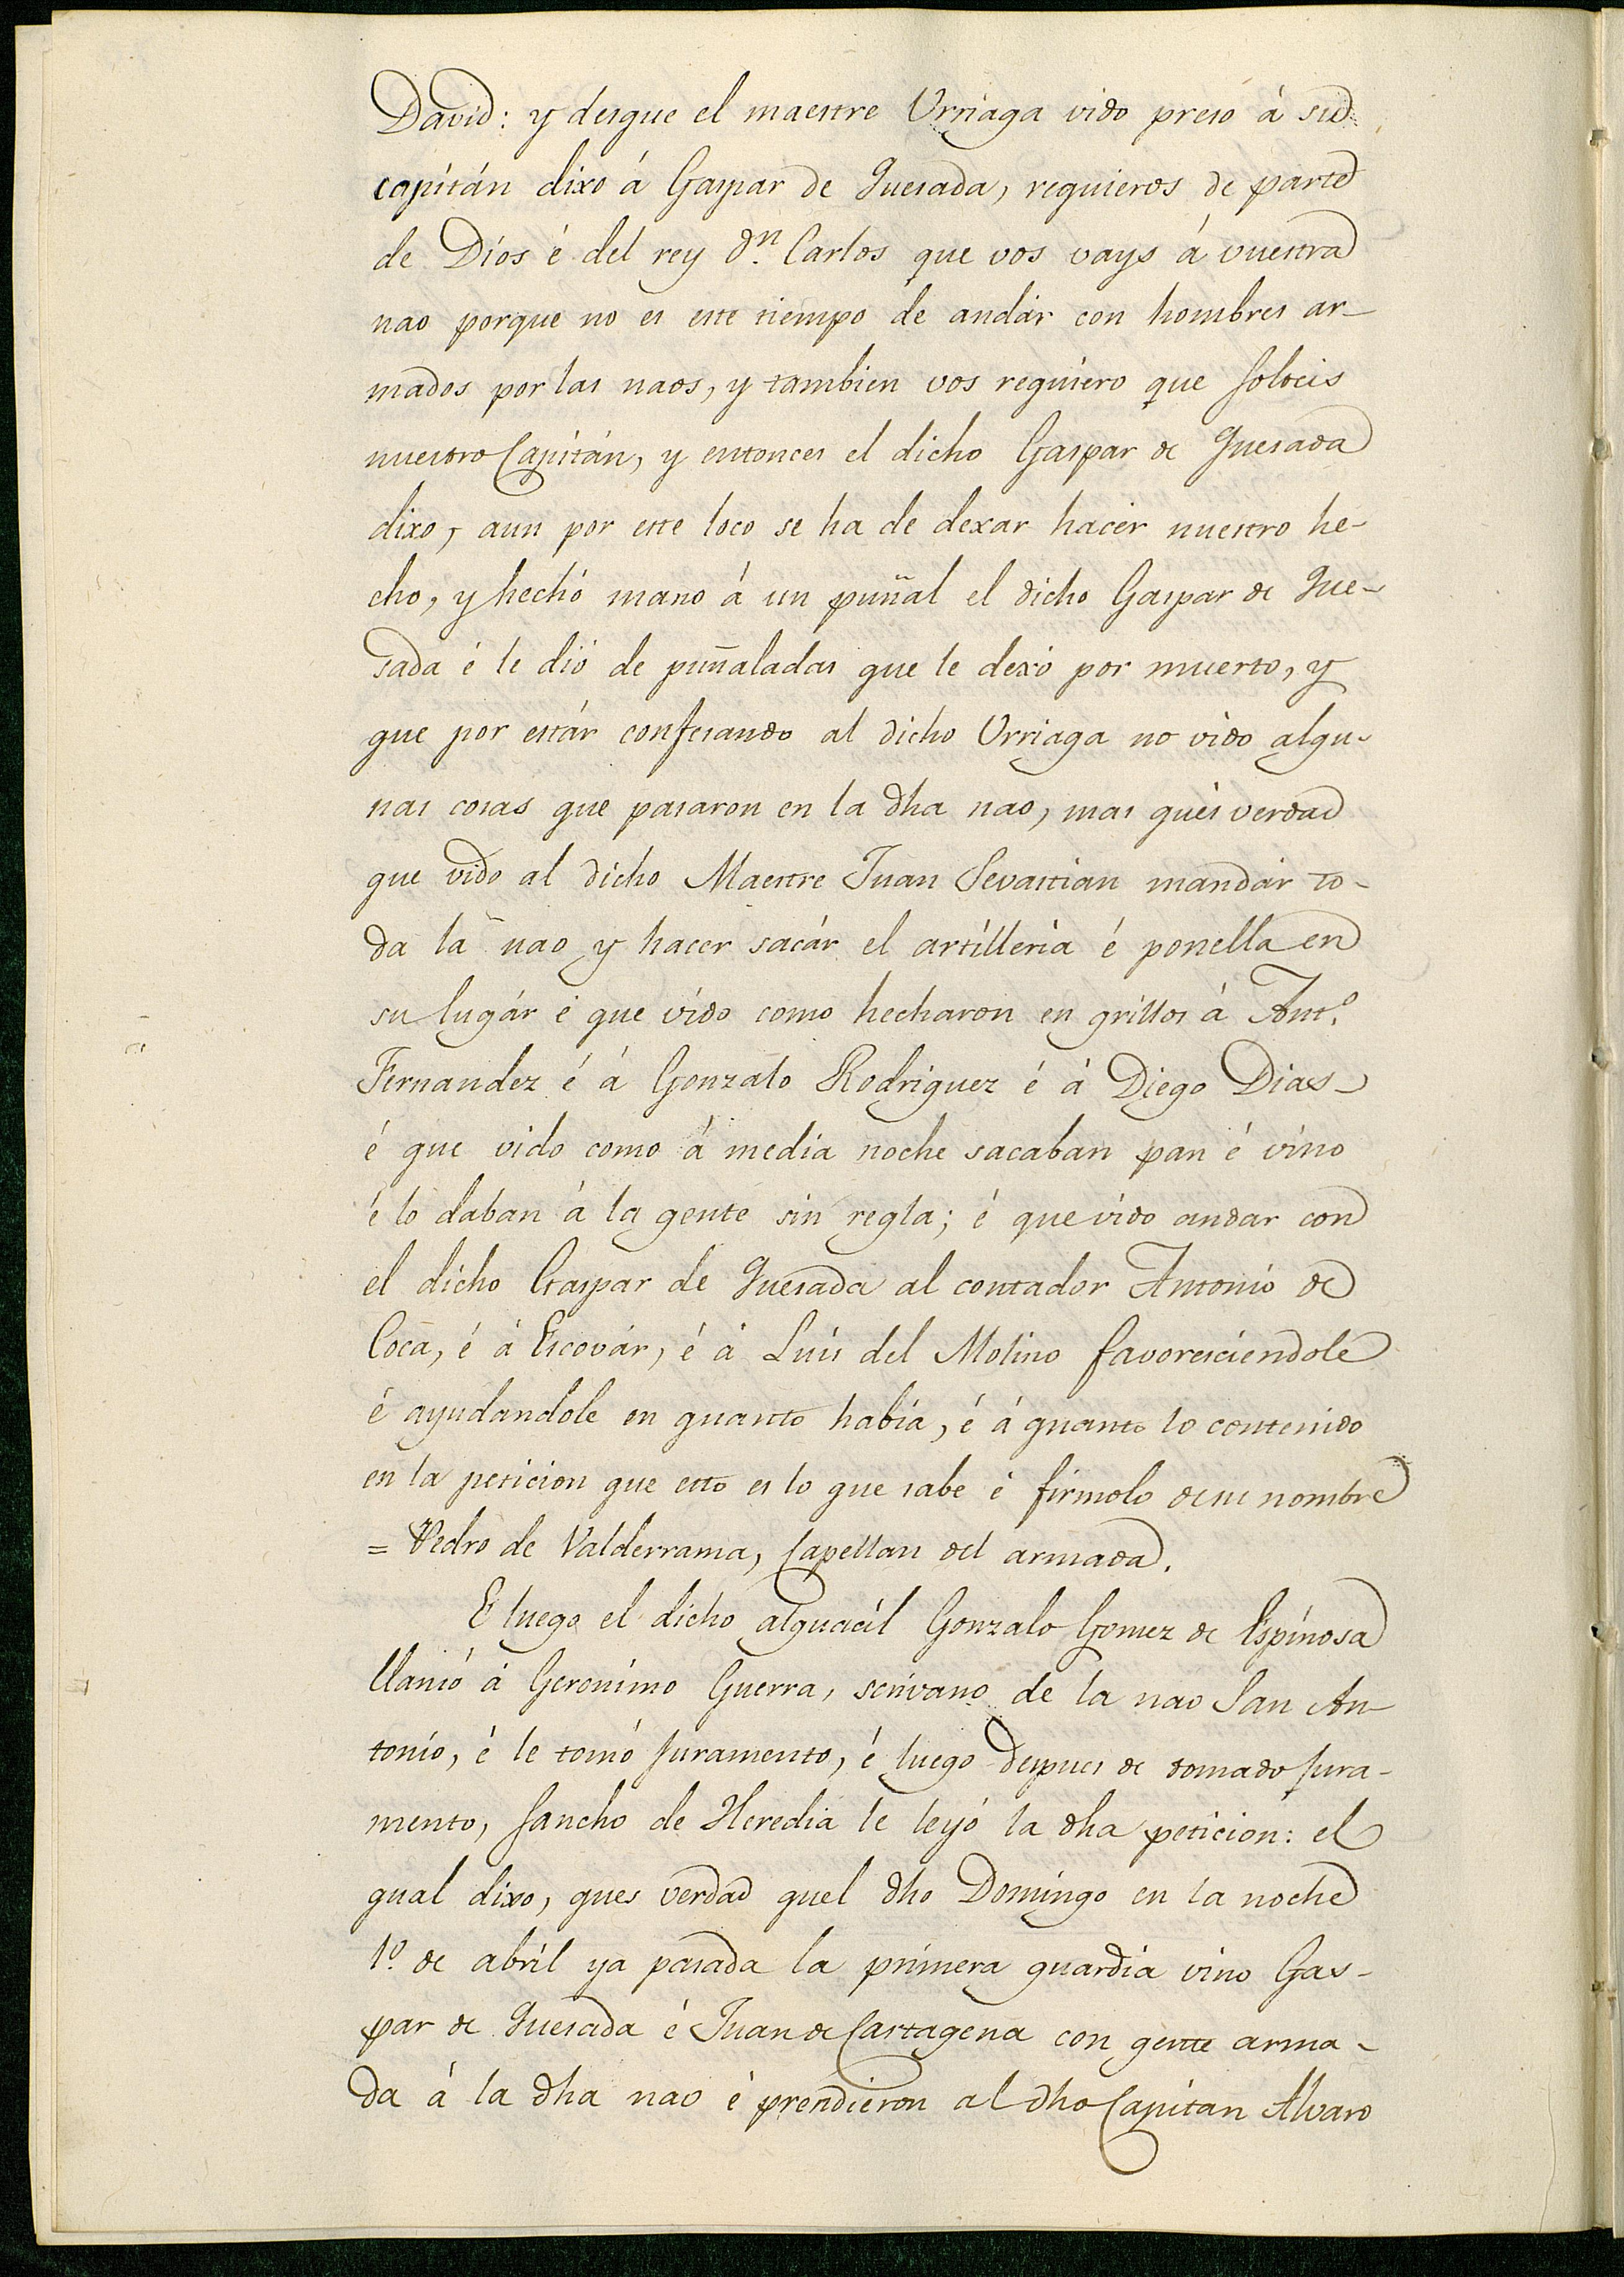 David: y desque el maestre Urriaga vido preso á su
capitán dixo á Gaspar de Quesada, requieros de parte
de Dios é del rey dn. Carlos que vos vays á vuestra
nao porque no es este tiempo de andár con hombres ar-
mados por las naos, y tambien vos requiero que solteis
nuestro Capitán, y entonces el dicho Gaspar de Quesada
dixo, aun por este loco se ha de dexar hacer nuestro he-
cho, y hechó mano á un puñal el dicho Gaspar de Que-
sada é le dió de puñaladas que le dexó por muerto, y
que por estár confesando al dicho Urriaga no vido algu-
nas cosas que pasaron en la dha nao, mas qués verdad
que vido al dicho Maestre Juan Sevastian mandár to-
da la nao y hacer sacár el artilleria é ponella en
su lugár é que vido como hecharon en grillos á Anto.
Fernandez é á Gonzalo Rodriguez é á Diego Dias
é que vido como á media noche sacaban pan é vino
é lo daban á la gente sin regla; é que vido andar con
el dicho Gaspar de Quesada al contador Antonio de
Coca, é á Escovár, é á Luis del Molino favoresciendole
é ayudandole en quanto habia, é á quanto lo contenido
en la peticion que esto es lo que sabe é firmolo de su nombre
= Pedro de Valderrama, Capellan del armada.
E luego el dicho alguacil Gonzalo Gomez de Espinosa
llamó á Geronimo Guerra, scrivano de la nao San An-
tonio, é le tomó juramento, é luego despues de tomado jura-
mento, Sancho de Heredia le leyó la dha peticion: el
qual dixo, ques verdad quel dho Domingo en la noche
1º. de abril ya pasada la primera guardia vino Gas-
par de Quesada é Juan de Cartagena con gente arma-
da á la dha nao é prendieron al dho Capitan Alvaro